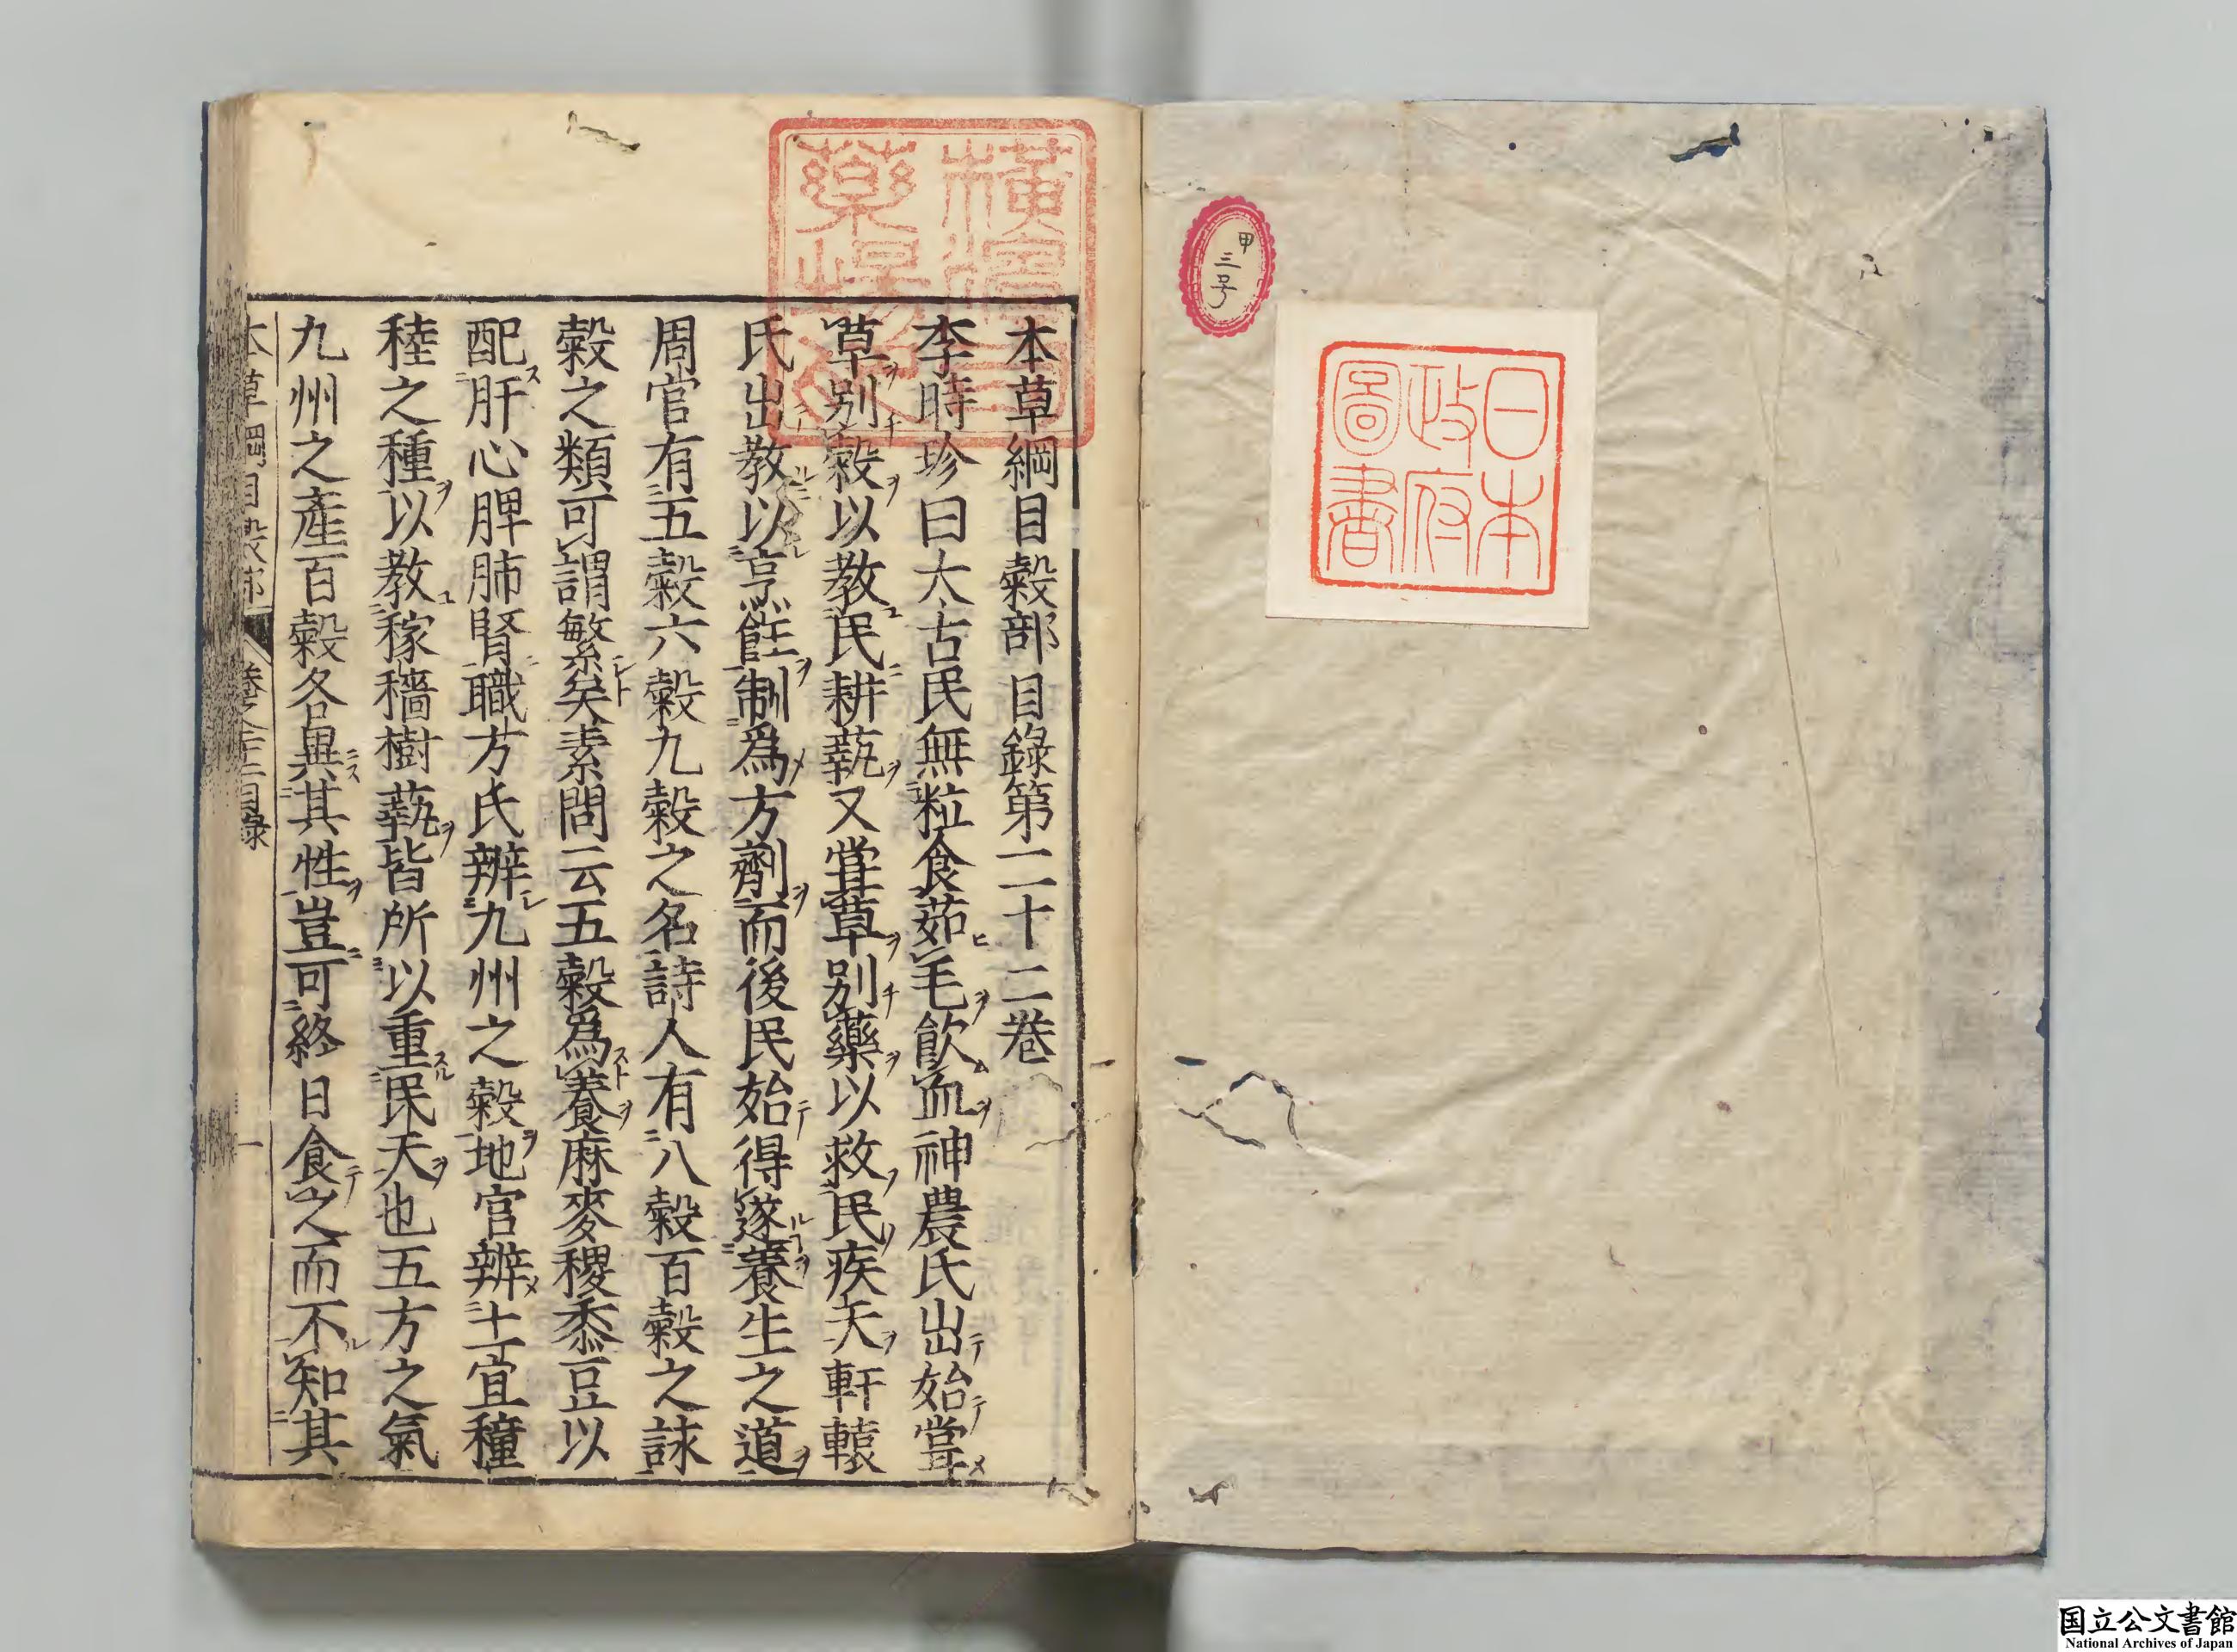 甲
三
号
日本
政府
圖書
本草綱目穀部目錄第二十二卷
李時珍曰太古民無粒食茹毛飲血神農氏出始嘗
草別穀以教民耕蓺又嘗草別藥以救民疾夭軒轅
氏出教以烹飪制爲方劑而後民始得遂養生之道
周官有五穀六穀九穀之名詩人有八穀百穀之詠
穀之類可謂繁矣素問云五穀爲養麻麥稷黍豆以
配肝心脾肺腎職方氏辨九州之穀地官辨土宜穜
稑之種以教稼穡樹蓺皆所以重民天也五方之氣
九州之產百穀各異其性豈可終日食之而不知其
本草綱目穀部 卷之二十二目錄 一
国立公文書館
National Archives of Japan